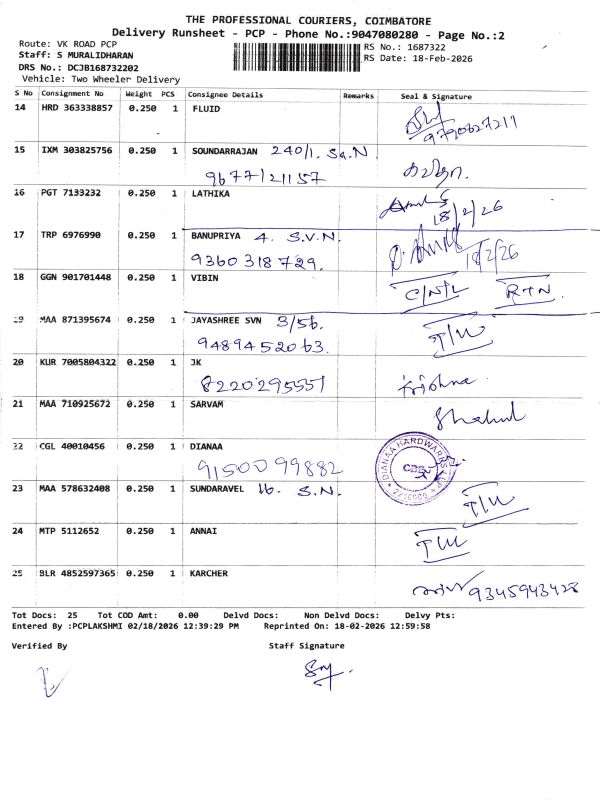 THE PROFESSIONAL COURIERS, COIMBATORE
Delivery Runsheet - PCP - Phone No.:9047080280 - Page No.:2
Route: VK ROAD PCP
RS No.: 1687322
Staff: S MURALIDHARAN
RS Date: 18-Feb-2026
DRS No.: DCJB168732202
Vehicle: Two Wheeler Delivery
S No Consignment No Weight PCS Consignee Details Remarks Seal & Signature
14 HRD 363338857 0.250 1 FLUID
9790627211
15 IXM 303825756 0.250 1 SOUNDARRAJAN 240/1. Sa.N
9677121157
16 PGT 7133232 0.250 1 LATHIKA
18/2/26
17 TRP 6976990 0.250 1 BANUPRIYA 4. S.V.N.
9360318729. 18/2/26
18 GGN 901701448 0.250 1 VIBIN C/N/L RTN.
19 MAA 871395674 0.250 1 JAYASHREE SVN 3/56. T/W
9489452063.
20 KUR 7005804322 0.250 1 JK
8220295551 Krishna
21 MAA 710925672 0.250 1 SARVAM Shahul
22 CGL 40010456 0.250 1 DIANAA
9150099882
DIANAA HARDWARES LLP
CBE
23 MAA 578632408 0.250 1 SUNDARAVEL 16. S.N. T/W
24 MTP 5112652 0.250 1 ANNAI T/W
25 BLR 4852597365 0.250 1 KARCHER
9345943428
Tot Docs: 25 Tot COD Amt: 0.00 Delvd Docs: Non Delvd Docs: Delvy Pts:
Entered By :PCPLAKSHMI 02/18/2026 12:39:29 PM Reprinted On: 18-02-2026 12:59:58
Verified By Staff Signature